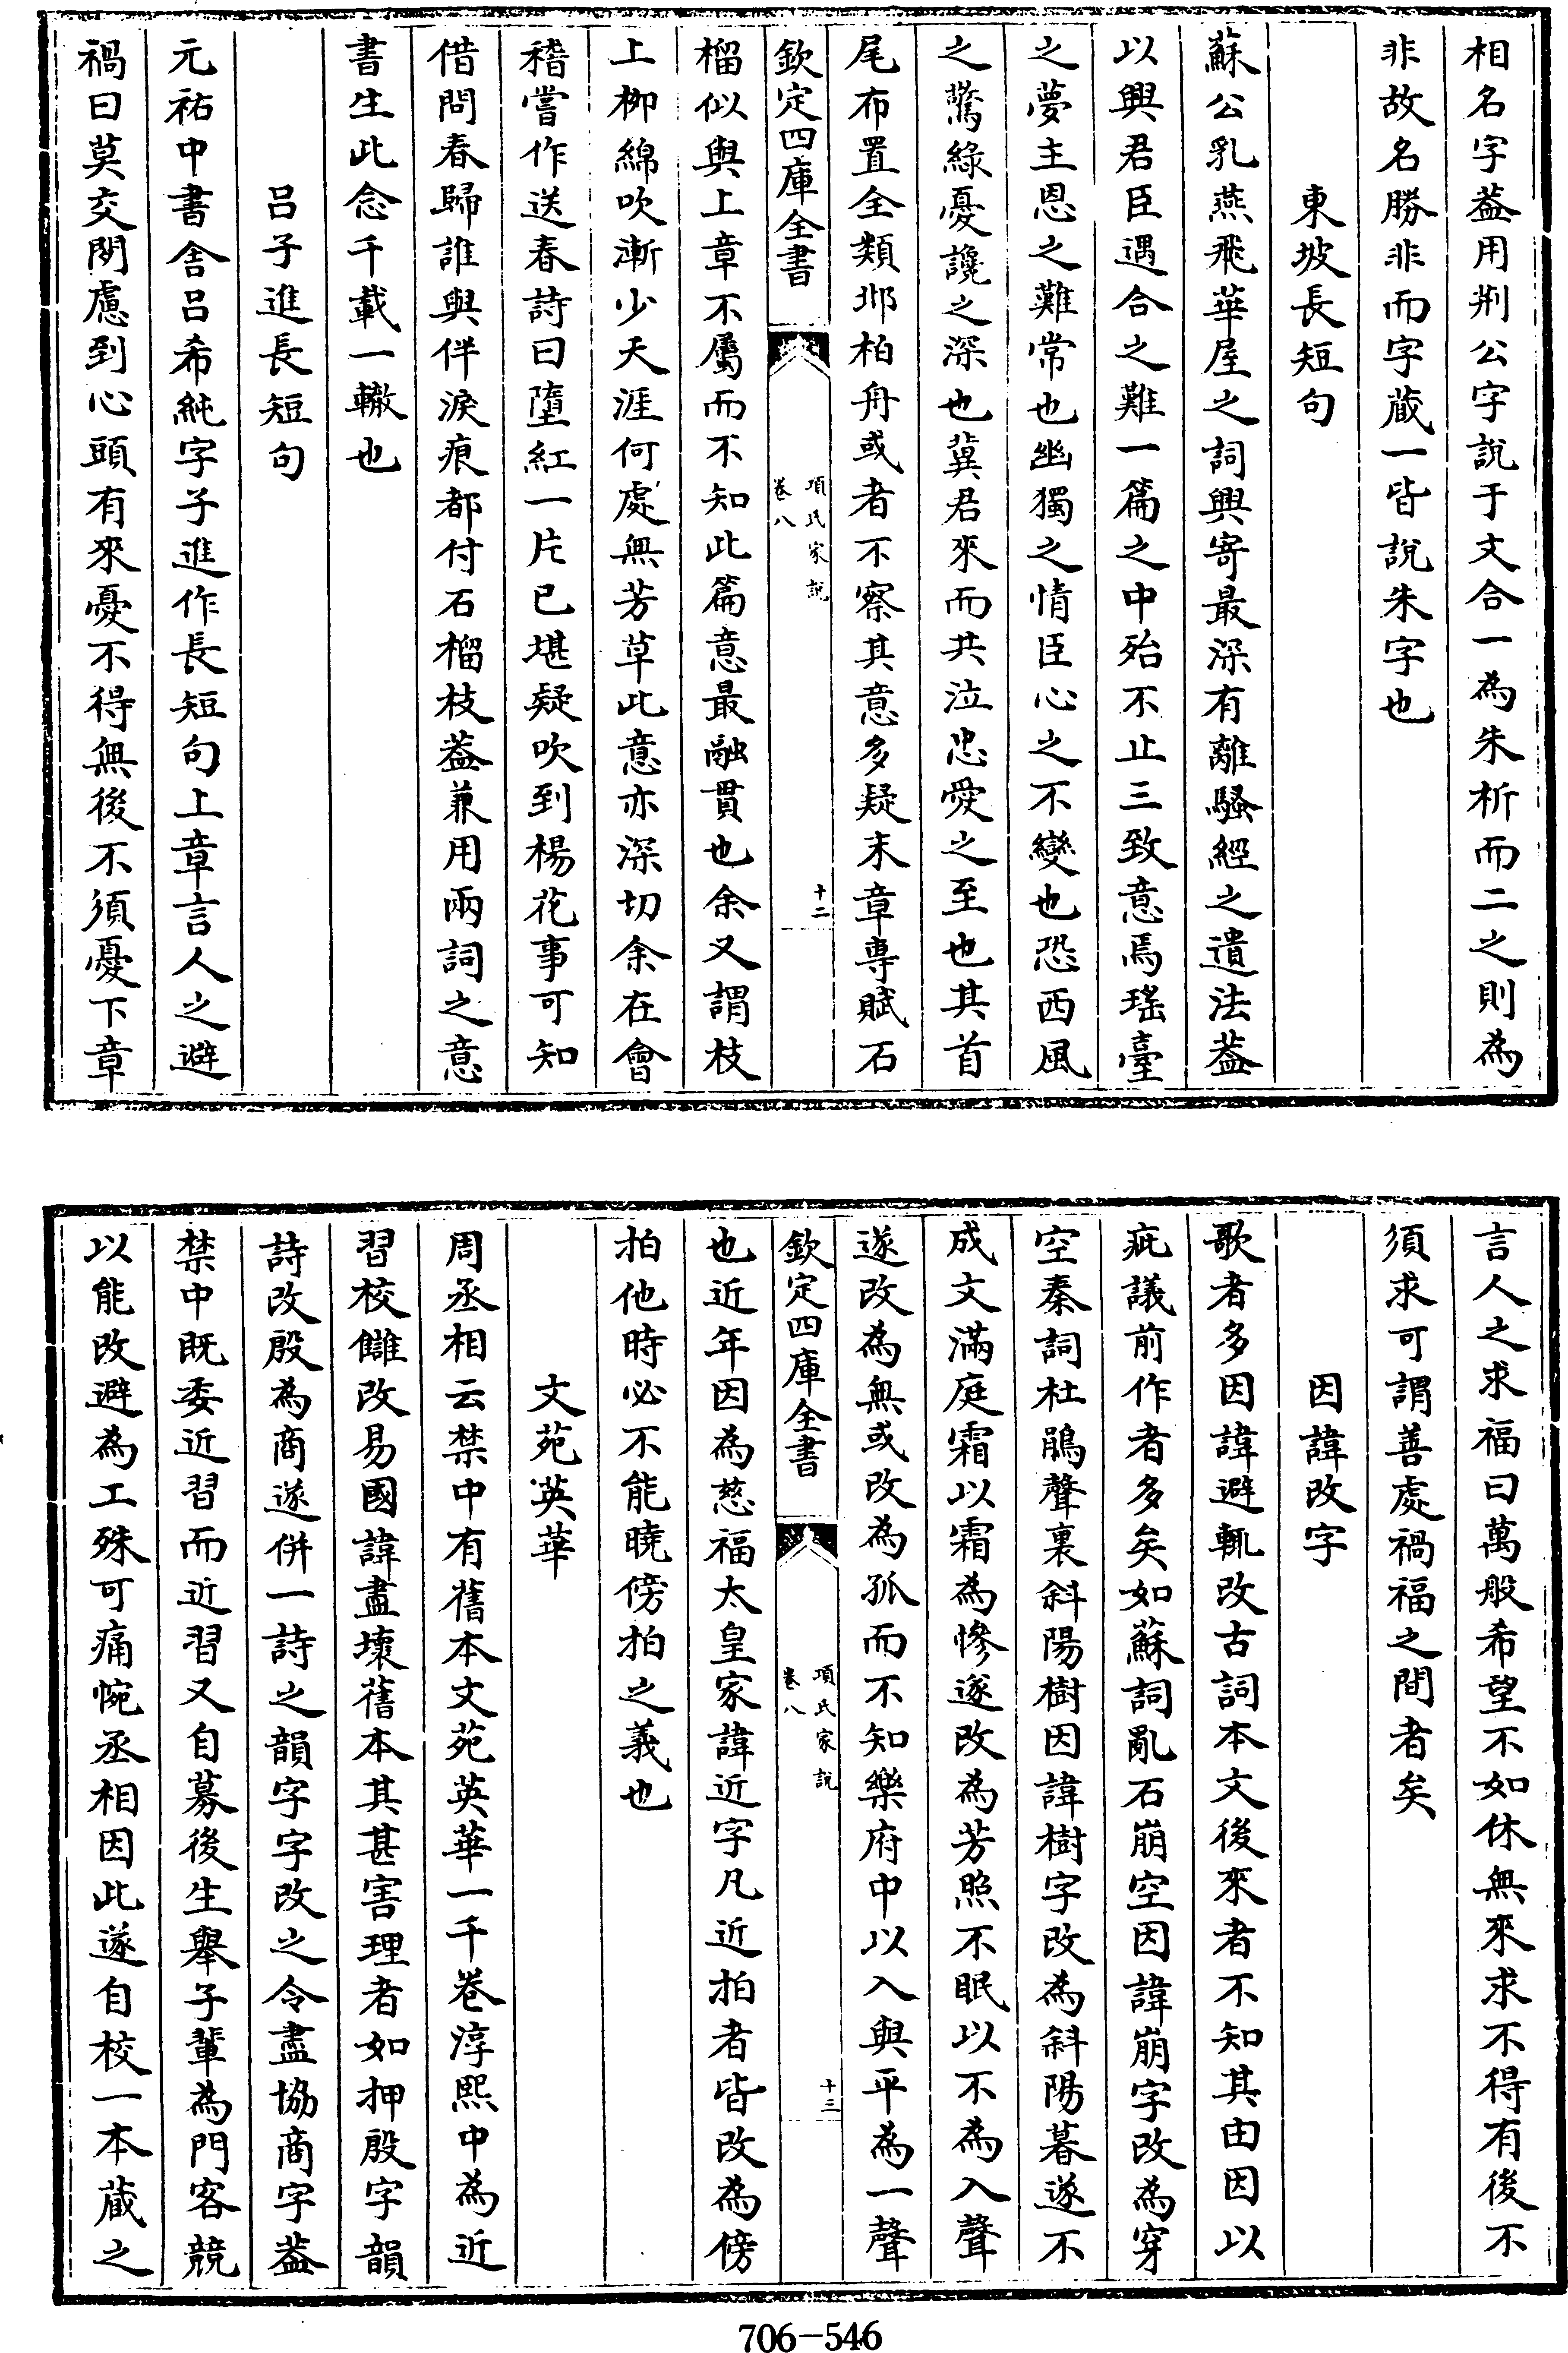 相名字葢用荆公字說于文合一為朱析而二之則為
非故名勝非而字蔵一皆說朱字也
東坡長短句
蘇公乳燕飛華屋之詞興寄最深有離騷經之遺法葢
以興君臣遇合之難一篇之中殆不止三致意焉瑤臺
之夢主恩之難常也幽獨之情臣心之不變也恐西風
之驚綠憂讒之深也冀君來而共泣忠愛之至也其首
尾布置全類邶柏舟或者不察其意多疑末章專賦石
欽定四庫全書
項氏家說
卷八
十二
榴似與上章不屬而不知此篇意最融貫也余又謂枝
上柳綿吹漸少天涯何處無芳草此意亦深切余在會
稽嘗作送春詩曰墮紅一片已堪疑吹到楊花事可知
借問春歸誰與伴淚痕都付石榴枝葢兼用兩詞之意
書生此念千載一轍也
呂子進長短句
元祐中書舍呂希純字子進作長短句上章言人之避
禍曰莫交閒慮到心頭有來憂不得無後不須憂下章
言人之求福曰萬般希望不如休無來求不得有後不
須求可謂善處禍福之間者矣
因諱改字
歌者多因諱避輒改古詞本文後來者不知其由因以
疵議前作者多矣如蘇詞亂石崩空因諱崩字改為穿
空秦詞杜鵑聲裏斜陽樹因諱樹字改為斜陽暮遂不
成文滿庭霜以霜為慘遂改為芳照不眠以不為入聲
遂改為無或改為孤而不知樂府中以入與平為一聲
欽定四庫全書
項氏家說
卷八
十三
也近年因為慈福太皇家諱近字凡近拍者皆改為傍
拍他時必不能曉傍拍之義也
文苑英華
周丞相云禁中有舊本文苑英華一千卷淳熙中為近
習校讎改易國諱盡壞舊本其甚害理者如押殷字韻
詩改殷為商遂併一詩之韻字字改之令盡協商字葢
禁中既委近習而近習又自募後生舉子輩為門客競
以能改避為工殊可痛惋丞相因此遂自校一本蔵之
706-546